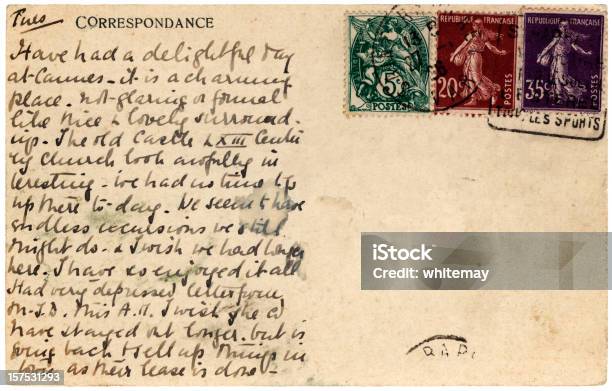 Tues CORRESPONDANCE
Have had a delightful day
at Cannes - it is a charming
place. not glaring or formal
like Nice & lovely surround-
ings. The old Castle & XIII Centu
ry Church look awfully in
teresting - we had no time to go
up there to-day. We seem to have
endless excursions we still
might do - & I wish we had longer
here. I have so enjoyed it all
Had very depressed letter from
this A.M. I wish she cd
have stayed out longer. but is
going back to sell up things in
as their lease is done -
REPUBLIQUE FRANÇAISE
5c
POSTES
REPUBLIQUE FRANÇAISE
20c
POSTES
REPUBLIQUE FRANÇAISE
35c
POSTES
LES SPORTS
iStock
Credit: whitemay
157531293